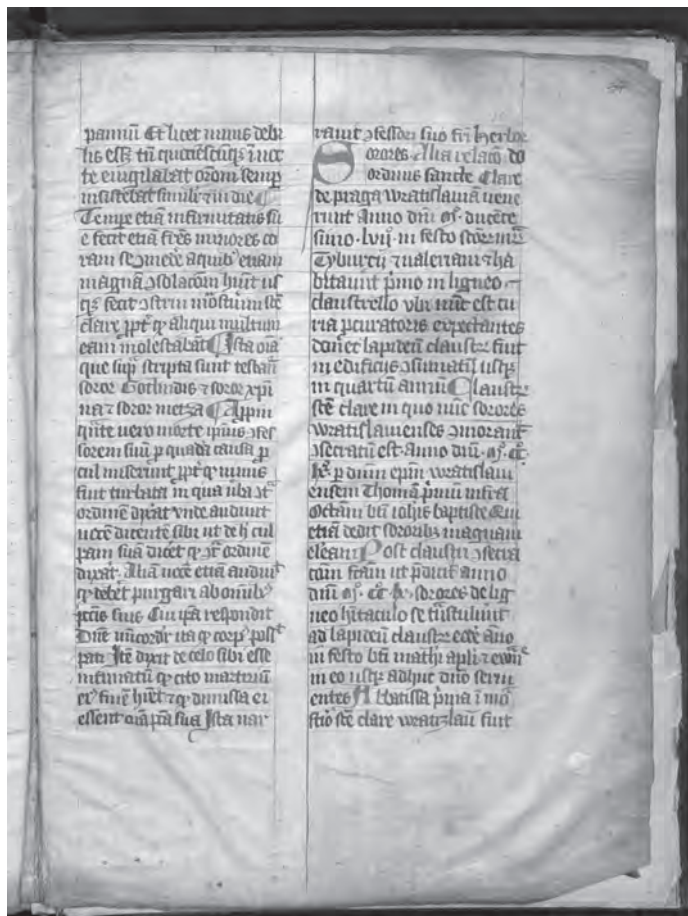 pannū Et licet nimis debi
lis esset tn̄ quociēscūqȝ ī noc
te euigilabat or̄oni semp̄
insistebat similr̄ ⁊ in die
Tempe etiā infirmitatis su
e fecit etiā fr̄es minores co
ram se
magnā ↄsolac̄om
clare ppt̄ qd̄ aliqui multum
eam molestabāt Ista om̄ia
que sup̄ scripta sunt testan̄
soror Gothindis ⁊ soror xp̄i
na ⁊ soror metza Appin
q̄nte uero morte ip̄ius ↄfes
sorem suū p̄ quadā causa p̄
cul miserunt ppt̄ qd̄ nimis
fuit turbata in qua
ordinē dix̄at vnde audiuit
uocē dicentē sibi ut de h̄ cul
pam suā dic̄et qd̄ ↄt̄ ordinē
dix̄at. Aliā uocē etiā audiuit
qd̄ deb̄et purgari ab om̄ibȝ
pc̄cis suis Cui ip̄a respondit
Dn̄e
Itē dixit de celo sibi esse
intimatū qd̄ cito martiriū
ei⁹ finē h̄iret ⁊ qd̄ dimissa ei
essent om̄ia pc̄cā sua Ista nar
rauit ↄfessori suo fr̄i herbor
Sorores
ordinis sancte Clare
de praga wratislauiā uene
runt Anno dn̄i m̊. ducēte
simo. lvij. in festo sc̄or̄ mr̄m
Tyburcij ⁊ ualeriani ⁊ ha
bitauit p̄mo in ligneo
claustrello vbi nūc est cu
ria p̄curatoris expectantes
donec lapideū claustrȝ fuit
in edificijs ↄsumatū usqȝ
in quartū annū Claustrȝ
sc̄e clare in quo nūc sorores
wratislauienses ↄmorant̄
ↄsecratū est. anno dn̄i. m̊. cc̊.
lx̊. p̄ dn̄um ep̄m wratislaui
ensem Thomā p̄mū infra
Octauā bt̄i ioh̄is baptiste Qui
etiā dedit sororibȝ magnam
el̄eam Post claustri ↄsecra
c̄om fc̄am ut p̄dicit̄ anno
dn̄i m̊. cc̊ lx̊. sorores de lig
neo h̄itaculo se tn̄stulūnt
ad lapideū claustrȝ eodē ano
in festo bt̄i mathi apl̄i ⁊ ewn̄e
in eo usqȝ adhuc dn̄o serui
entes Abbatissa p̄ma ī mo
st̄io sc̄e clare wratzlau fuit